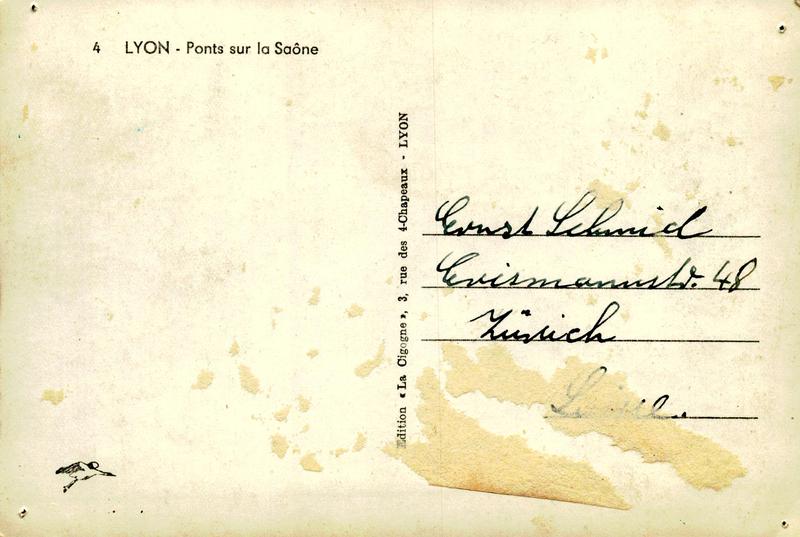 4 LYON - Ponts sur la Saône
Edition « La Cigogne », 3, rue des 4-Chapeaux - LYON
Ernst Schmid
Erismannstr. 48
Zürich